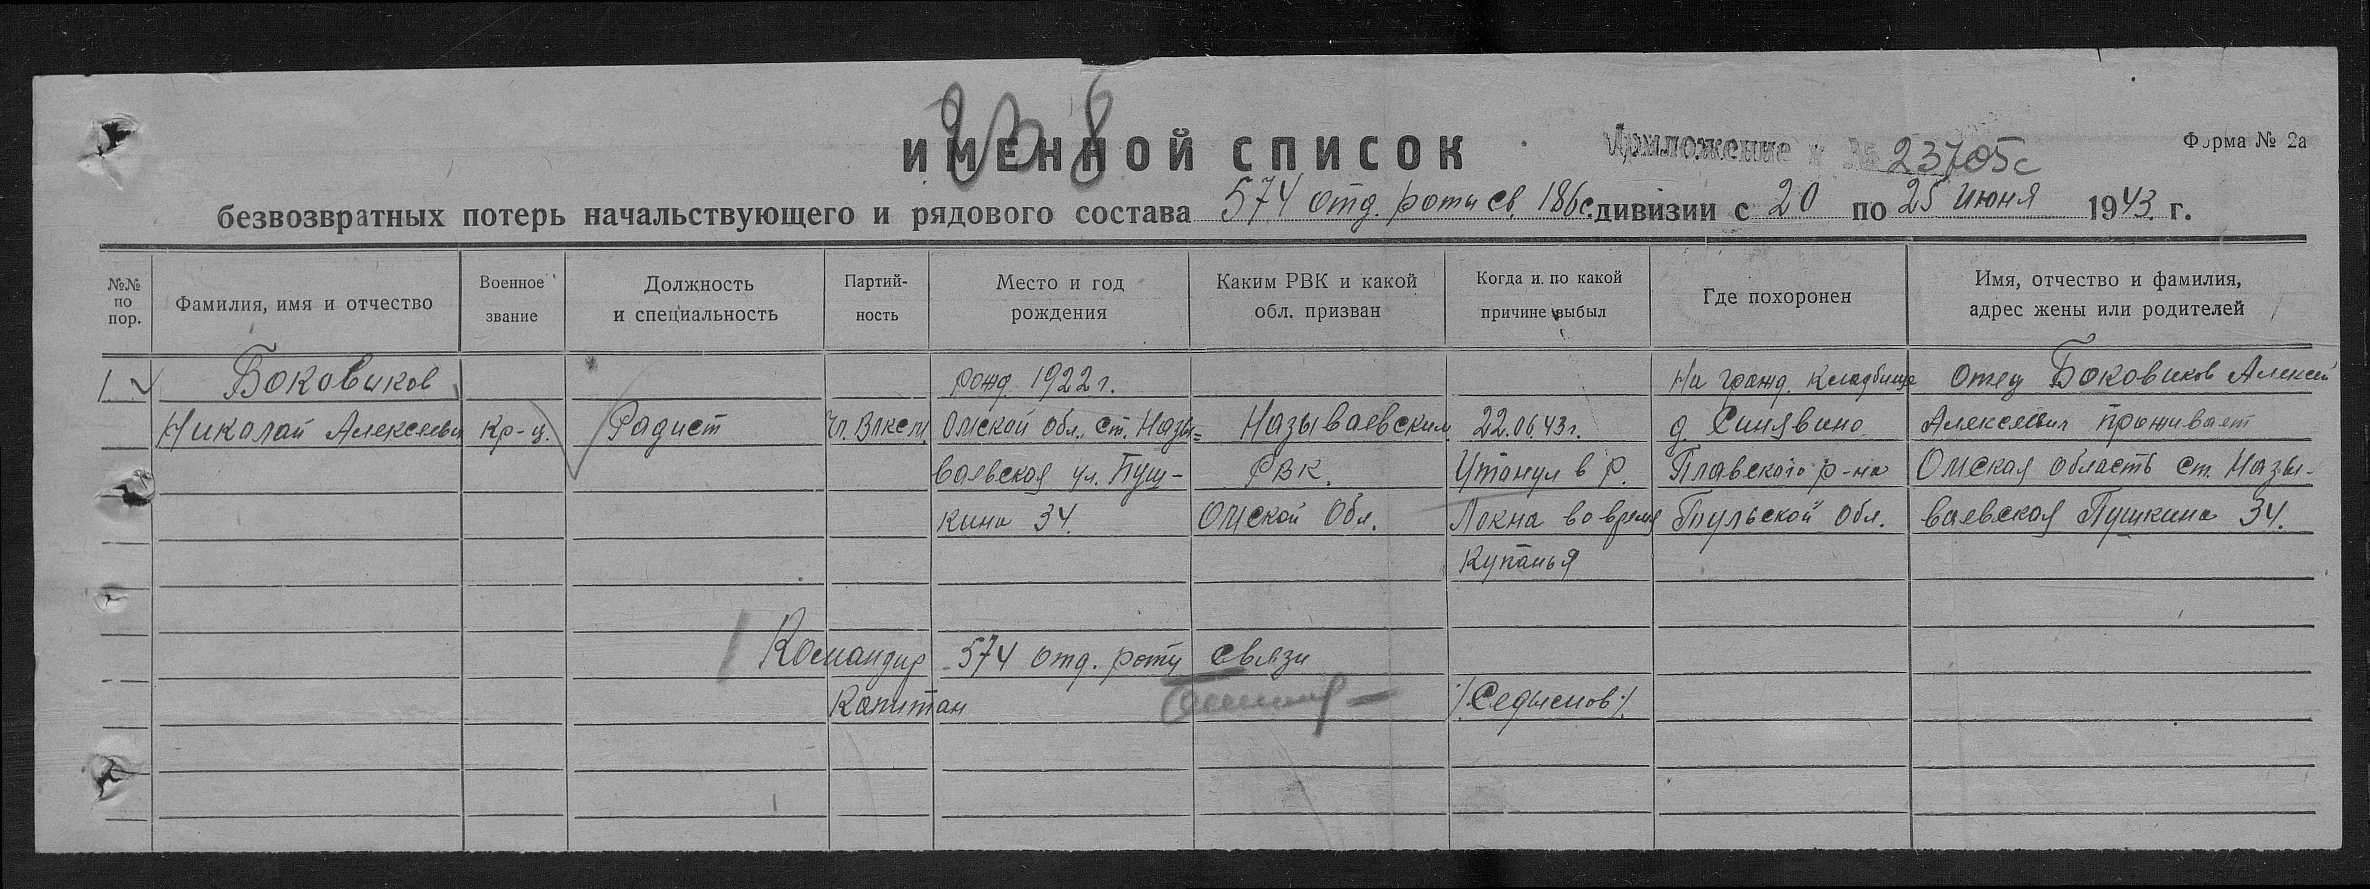 238
ИМЕННОЙ СПИСОК
Приложение к № 23705с
Форма № 2а
безвозвратных потерь начальствующего и рядового состава 574 отд. роты св. 186с. дивизии с 20 по 25 июня 1943 г.
№№ по пор. Фамилия, имя и отчество Военное звание Должность и специальность Партий-ность Место и год рождения Каким РВК и какой обл. призван Когда и по какой причине выбыл Где похоронен Имя, отчество и фамилия, адрес жены или родителей
1 Боковиков рожд. 1922 г. На гражд. кладбище отец Боковиков Алексей
Николай Алексеевич Кр-ц. Радист Чл. Влксм. Омской обл. ст. Назы= Называевским 22.06.43г. д. Синявино Алексеевич проживает
ваевская ул. Пуш- РВК. Утанул в р. Плавского р-на Омская область ст. Назы-
кина 34. Омской Обл. Локна во время Тульской обл. ваевская Пушкина 34.
Купанья
Командир 574 отд. роты связи
Капитан /Седыснов/.